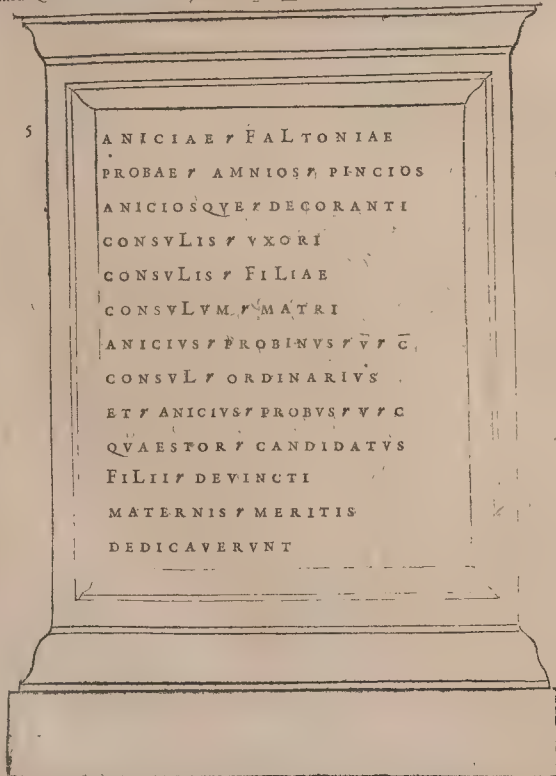 5
ANICIAE FALTONIAE
PROBAE AMNIOS PINCIOS
ANICIOSQVE DECORANTI
CONSVLIS VXORI
CONSVLIS FILIAE
CONSVLVM MATRI
ANICIVS PROBINVS V̅ C̅
CONSVL ORDINARIVS
ET ANICIVS PROBVS V C
QVAESTOR CANDIDATVS
FILII DEVINCTI
MATERNIS MERITIS
DEDICAVERVNT